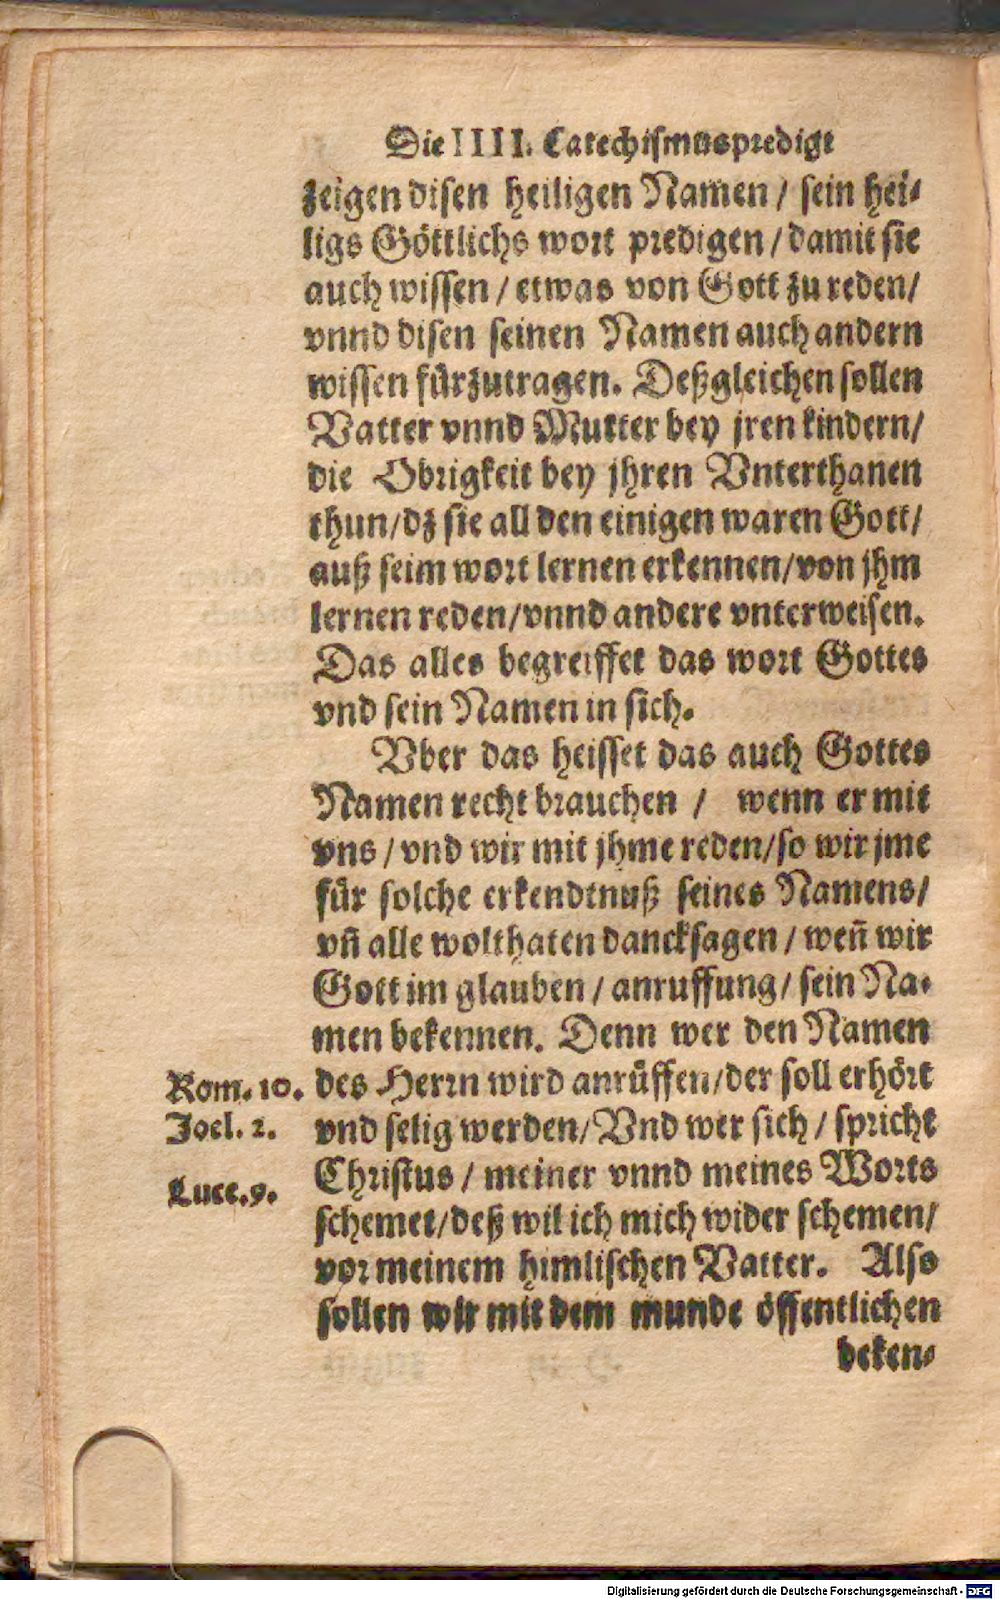 Die IIII. Catechismuspredigt
zeigen disen heiligen Namen / sein hei-
ligs Göttlichs wort predigen / damit sie
auch wissen / etwas von Gott zu reden/
vnnd disen seinen Namen auch andern
wissen fürzutragen. Deßgleichen sollen
Vatter vnnd Mutter bey jren kindern/
die Obrigkeit bey jhren Vnterthanen
thun/dz sie all den einigen waren Gott/
auß seim wort lernen erkennen/von jhm
lernen reden/vnnd andere vnterweisen.
Das alles begreiffet das wort Gottes
vnd sein Namen in sich.
Vber das heisset das auch Gottes
Namen recht brauchen / wenn er mit
vns / vnd wir mit jhme reden/so wir jme
für solche erkendtnuß seines Namens/
vn̄ alle wolthaten dancksagen / wen̄ wir
Gott im glauben / anruffung/ sein Na-
men bekennen. Denn wer den Namen
Rom. 10. des Herrn wird anrüffen/der soll erhört
Joel. 2. vnd selig werden/ Vnd wer sich / spricht
Christus / meiner vnnd meines Worts
Luce. 9.
schemet/deß wil ich mich wider schemen/
vor meinem himlischen Vatter. Also
sollen wir mit dem munde öffentlichen
beken-
Digitalisierung gefördert durch die Deutsche Forschungsgemeinschaft - DFG